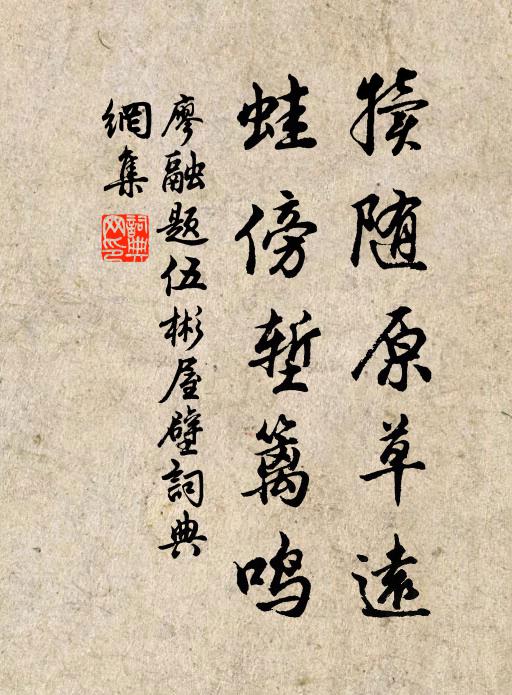 犊随原草远
蛙傍堑篱鸣
廖融题伍彬屋壁詞典
網集
詞典网印